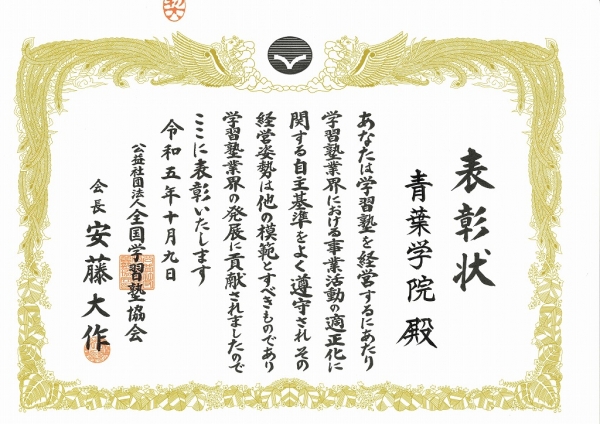 表彰状
青葉学院 殿
あなたは学習塾を経営するにあたり
学習塾業界における事業活動の適正化に
関する自主基準をよく遵守され その
経営姿勢は他の模範とすべきものであり
学習塾業界の発展に貢献されましたので
ここに表彰いたします
令和五年十月九日
公益社団法人全国学習塾協会
会長 安藤大作